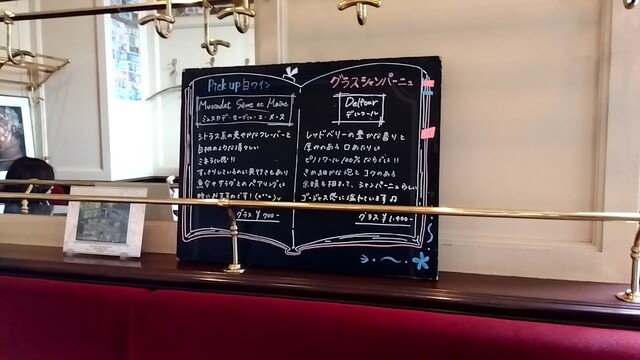 Pick up 白ワイン
Muscadet Sèvre et Maine
ミュスカデ・セーヴル・エ・メーヌ
シトラス系の爽やかなフレーバーと
白桃のような清々しい
ミネラル感!!
すっきりしているのに奥行きもあり
魚介やサラダとのペアリングに
特におすすめです!
グラス ¥700-
グラスシャンパーニュ
Delfour
デルフール
レッドベリーの豊かな香りと
厚みのある口あたりは
ピノノワール100%ならでは!!
きめ細かな泡とコクのある
余韻も相まって、シャンパーニュらしい
ゴージャス感に溢れています♫
グラス ¥1,400-